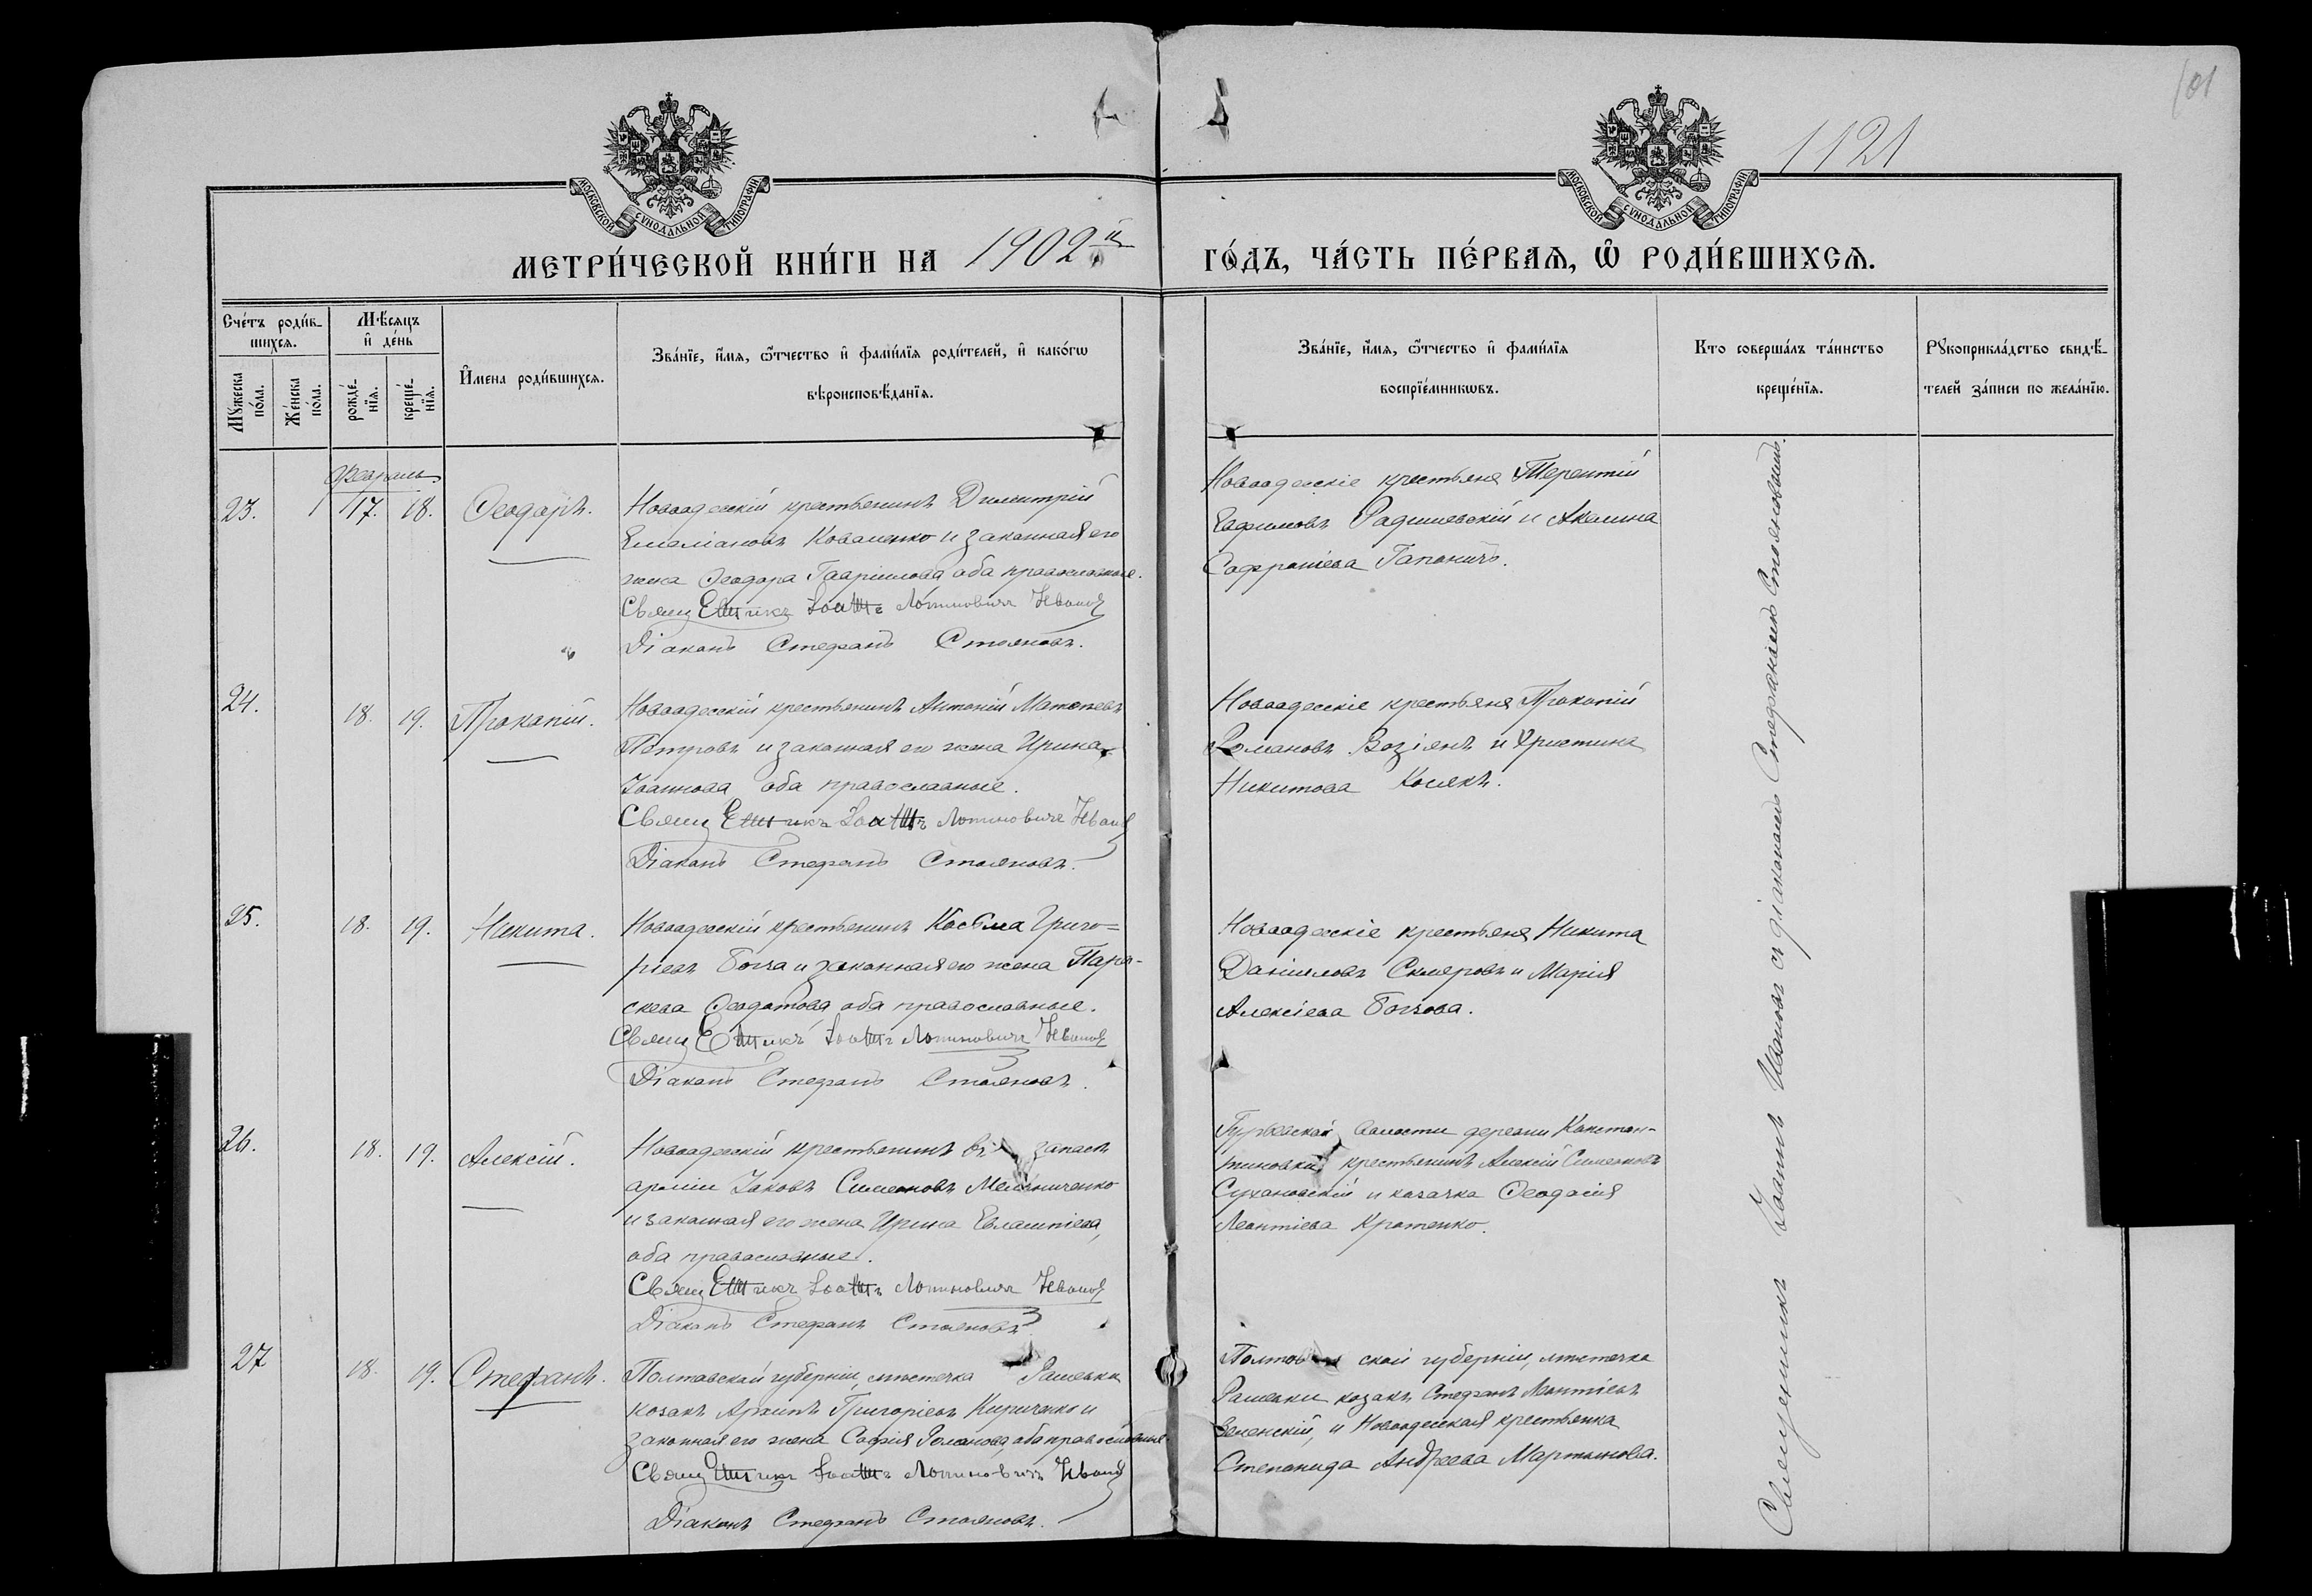 101
1121
МОСКОВСКОЙ СѴНОДАЛЬНОЙ ТИПОГРАФІИ
МОСКОВСКОЙ СѴНОДАЛЬНОЙ ТИПОГРАФІИ
МЕТРИ́ЧЕСКОЙ КНИ́ГИ НА 1902й
ГО́ДЪ, ЧА́СТЬ ПЕ́РВАѦ, Ѿ РОДИ́ВШИХСѦ.
Сче́тъ роди́в-
шихсѧ.
Мꙋжеска по́ла.
Же́нска по́ла.
Мѣ́сѧцъ и де́нь
рожде́-нїѧ.
креще́-нїѧ.
И҆мена роди́вшихсѧ.
Зва́нїе, и҆́мѧ, ѻ҆́тчество и҆ фами́лїѧ роди́телей, и҆ како́гѡ
вѣроисповѣ́данїѧ.
Зва́нїе, и҆́мѧ, ѻ҆́тчество и҆ фами́лїѧ
воспрїе́мникѡвъ.
Кто соверша́лъ та́инство
креще́нїѧ.
Рꙋкоприкла́дство свидѣ́-
телей за́писи по жела́нїю.
Февраль
23. 17. 18. Ѳеодоръ.
Новоодесскій крестьянинъ Димитрій
Емеліановъ Коваленко и законная его
жена Ѳеодора Гавріилова оба православные.
Свящ Іоаннъ Логиновичъ Ивановъ
Діаконъ Стефанъ Стояновъ.
Новоодесскіе крестьяне Терентій
Евфимовъ Радишевскій и Акилина
Софроніева Гапоничъ.
24. 18. 19. Прокопій.
Новоодесскій крестьянинъ Антоній Матвѣевъ
Петровъ и законная его жена Ирина
Іоаннова оба православные.
Свящ Іоаннъ Логиновичъ Ивановъ
Діаконъ Стефанъ Стояновъ.
Новоодесскіе крестьяне Прокопій
Романовъ Возіянъ и Христина
Никитова Косякъ.
25. 18. 19. Никита.
Новоодесскій крестьянинъ Косьма Григо=
ріевъ и законная его жена Пара-
скева Ѳеодотова оба православные.
Свящ Іоаннъ Логиновичъ Ивановъ
Діаконъ Стефанъ Стояновъ.
Новоодесскіе крестьяне Никита
Даніиловъ и Марія
Алексіева
26. 18. 19. Алексій.
Новоодесскій крестьянинъ въ запасѣ
арміи Іаковъ Симеоновъ Мельниченко
и законная его жена Ирина Евлампіева,
оба православные.
Свящ Іоаннъ Логиновичъ Ивановъ
Діаконъ Стефанъ Стояновъ
Гурьевской волости деревни Констан-
тиновки крестьянинъ Алексій Симеоновъ
Сухановскій и казачка Ѳеодосія
Леонтіева Кротенко.
27 18. 19. Стефанъ.
Полтавской губерніи, мѣстечка Рашевки
козакъ Архипъ Григоріевъ Кириченко и
законная его жена Софія Романова, оба православные.
Свящ Іоаннъ Логиновичъ Ивановъ
Діаконъ Стефанъ Стояновъ.
Полтавской губерніи, мѣстечка
Рашевки козакъ Стефанъ Леонтіевъ
Зеленскій, и Новоодесская крестьянка
Степанида Андреева Мартынова.
Священникъ Іоаннъ Ивановъ съ діакономъ Стефаномъ Стояновымъ.